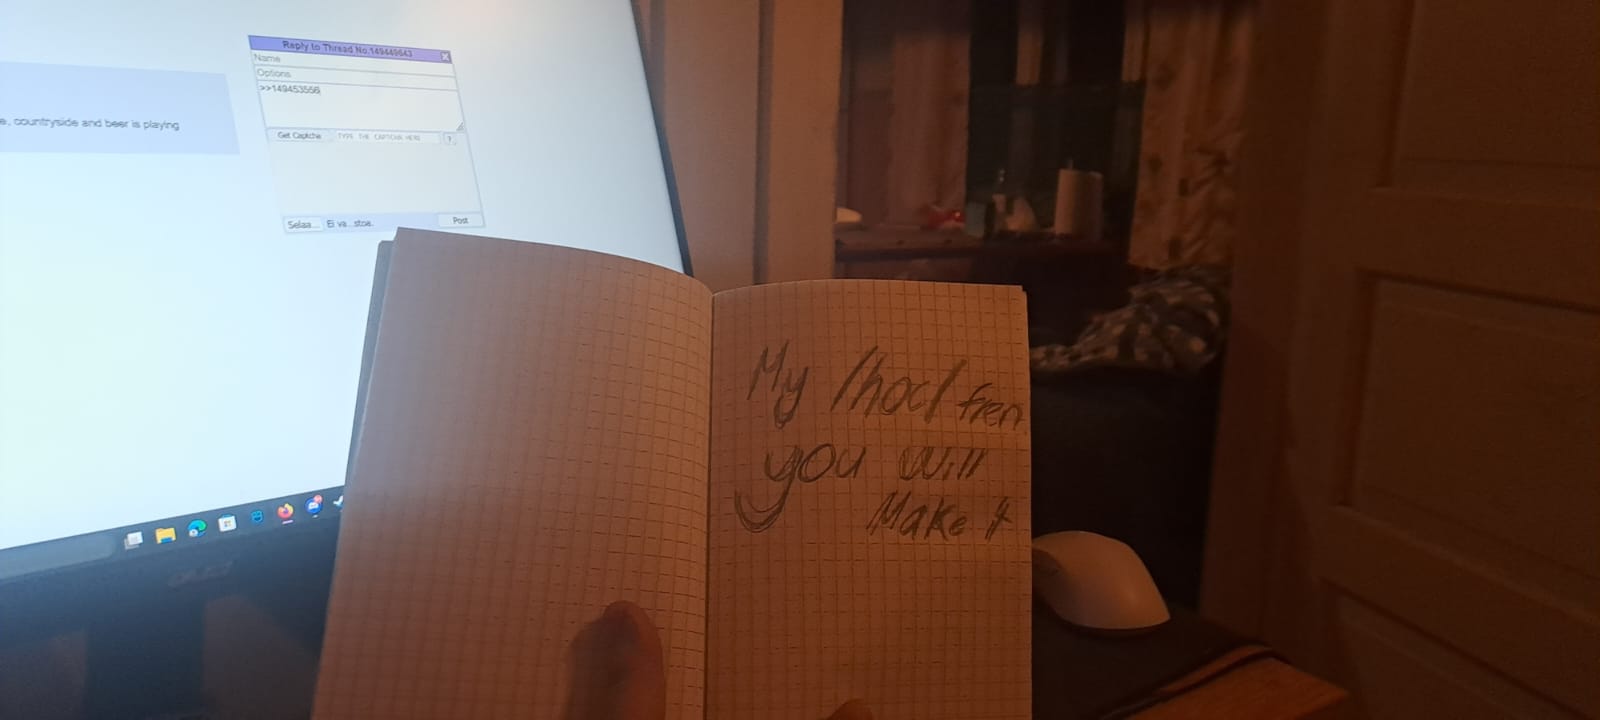 Reply to Thread No.149449643
Name
Options
>>149453556
Get Captcha TYPE THE CAPTCHA HERE ?
Selaa... Ei va...stoa. Post
countryside and beer is playing
My /hoc/ fren
you will
Make it